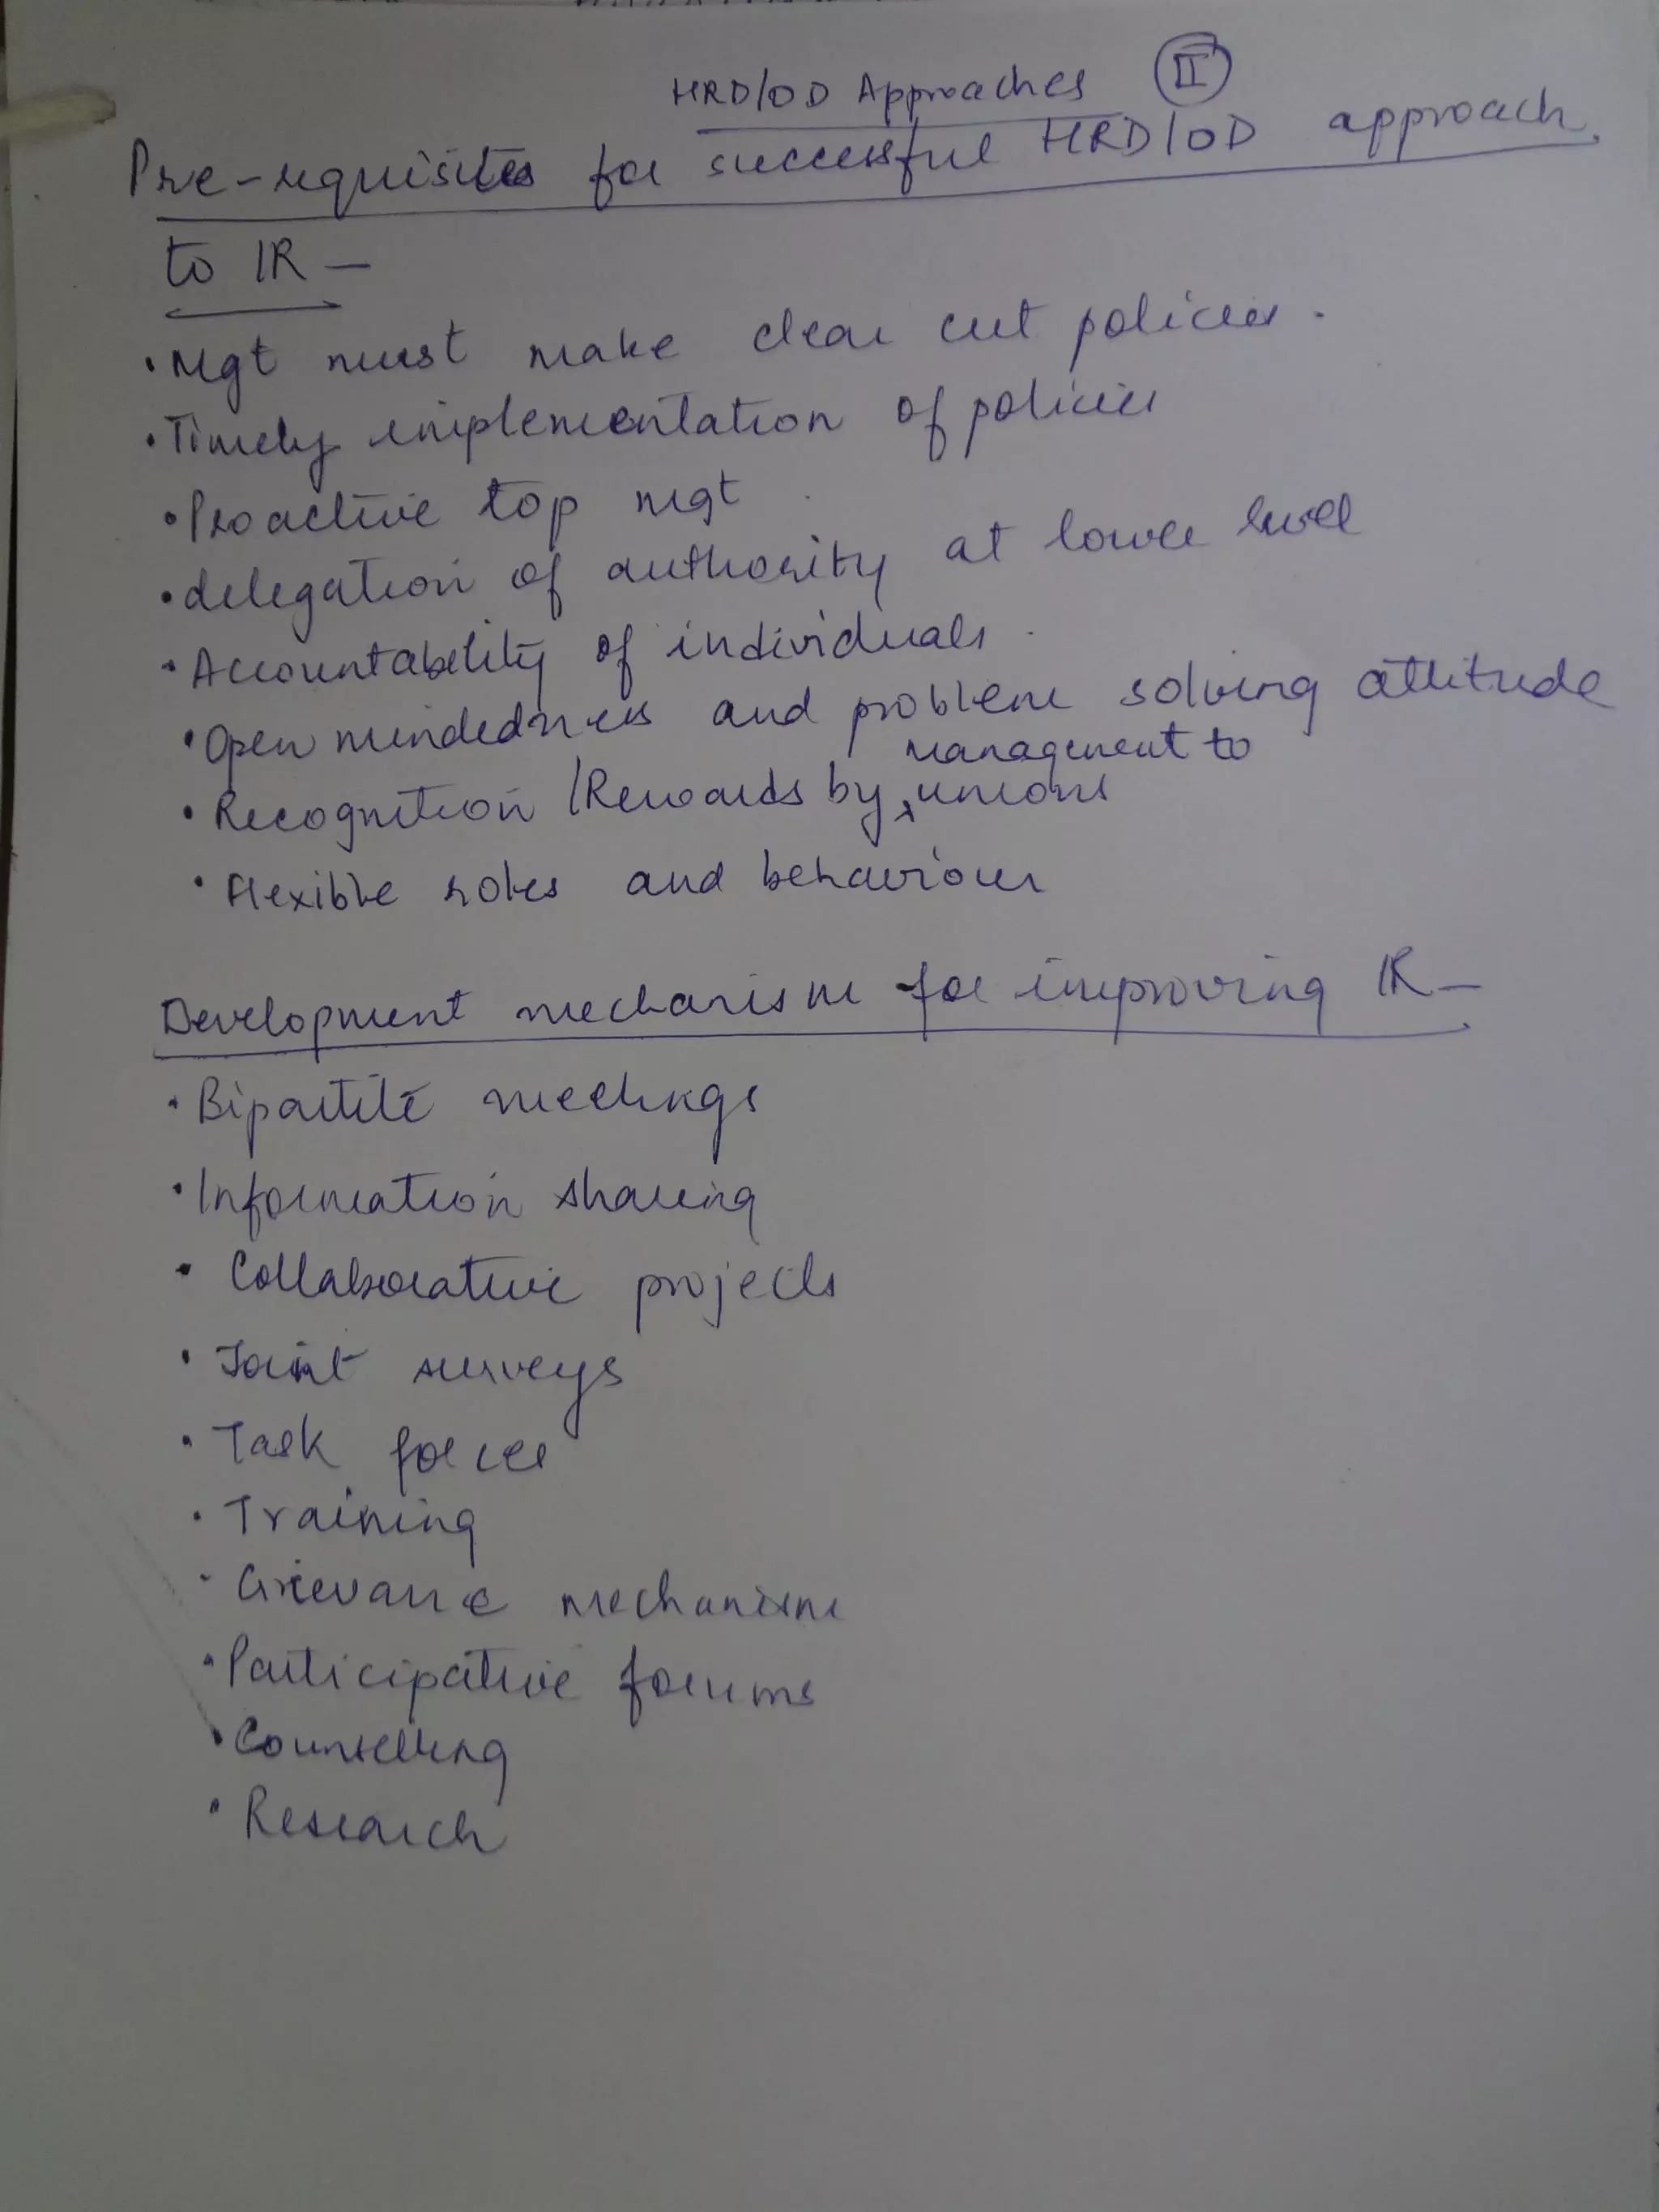 HRD/OD Approaches II
Pre-requisites for successful HRD/OD approach.
to IR -
• Mgt must make clear cut policies.
• Timely implementation of policies
• Proactive top mgt
• delegation of authority at lower level
• Accountability of individuals.
• Open mindedness and problem solving attitude
management to
• Recognition /Rewards by unions
• Flexible roles and behaviour
Development mechanism for improving IR -
• Bipartite meetings
• Information sharing
• Collaborative projects
• Joint surveys
• Task forces
• Training
• Grievance mechanism
• Participative forums
• Counselling
• Research